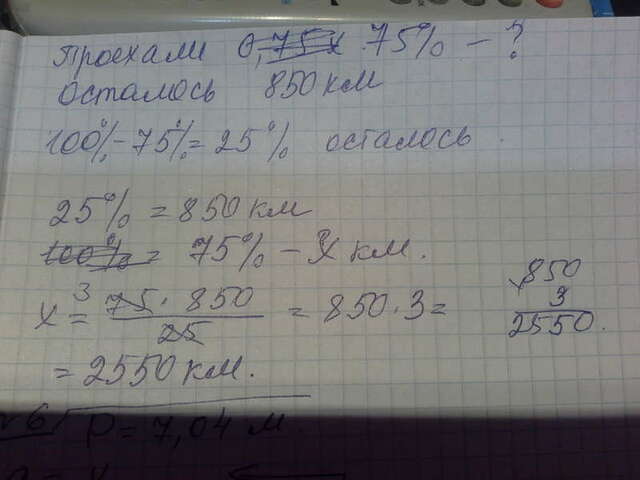 Проехали 75% - ?
Осталось 850 км
100% - 75% = 25% осталось.
25% = 850 км
100% = 75% - x км.
x = 75 · 850 / 25 = 850 · 3 =
3
850
3
2550.
= 2550 км.
6 P = 7,04 м.